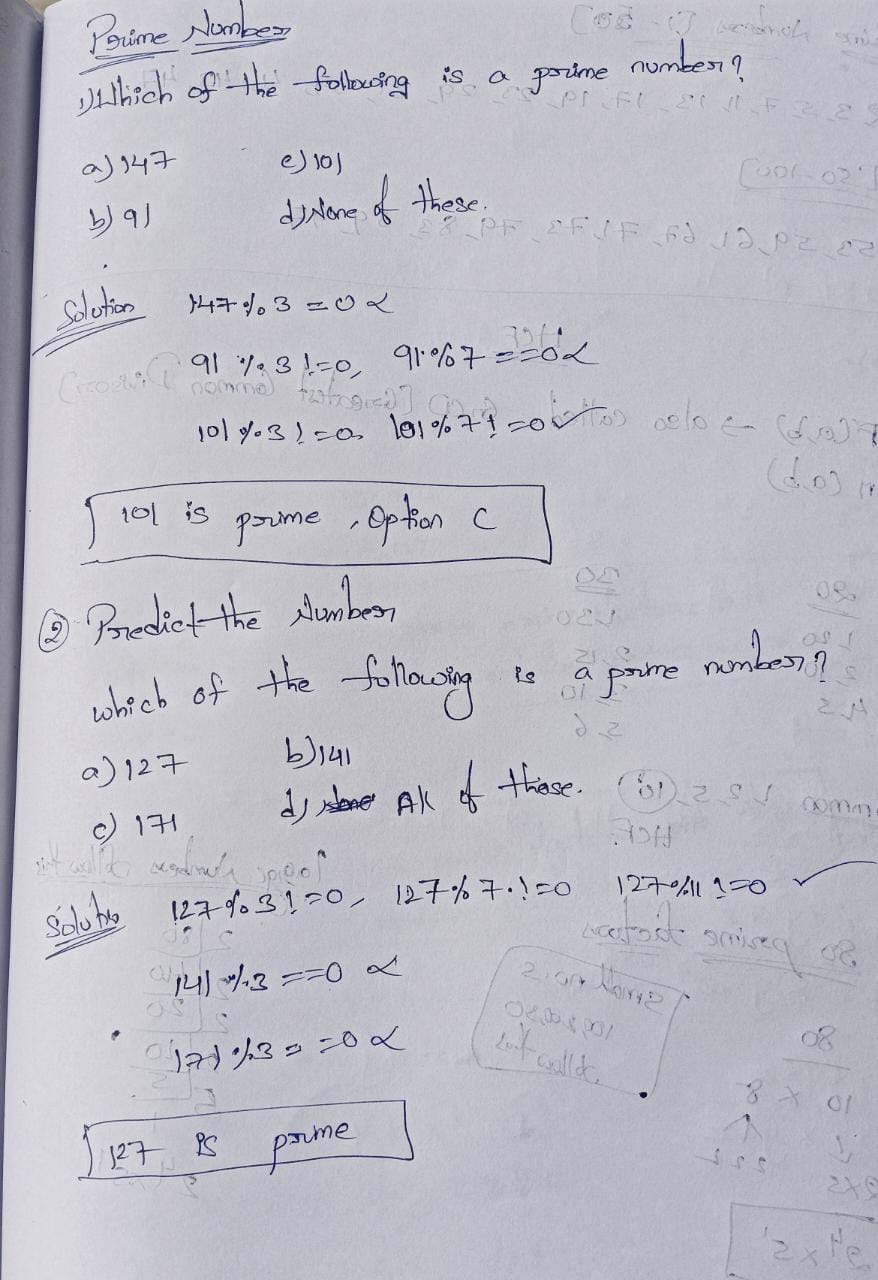 Prime Number
1) Which of the following is a prime number?
a) 147 c) 101
b) 91 d) None of these.
Solution 147 % 3 = 0 ×
91 % 3 != 0, 91 % 7 == 0 ×
101 % 3 != 0, 101 % 7 != 0 ✓
101 is prime, Option C
② Predict the Number
which of the following is a prime number?
a) 127 b) 141
c) 171 d) All of these.
Solutio 127 % 3 != 0, 127 % 7 != 0 127 % 11 != 0 ✓
141 % 3 == 0 ×
171 % 3 == 0 ×
127 is prime